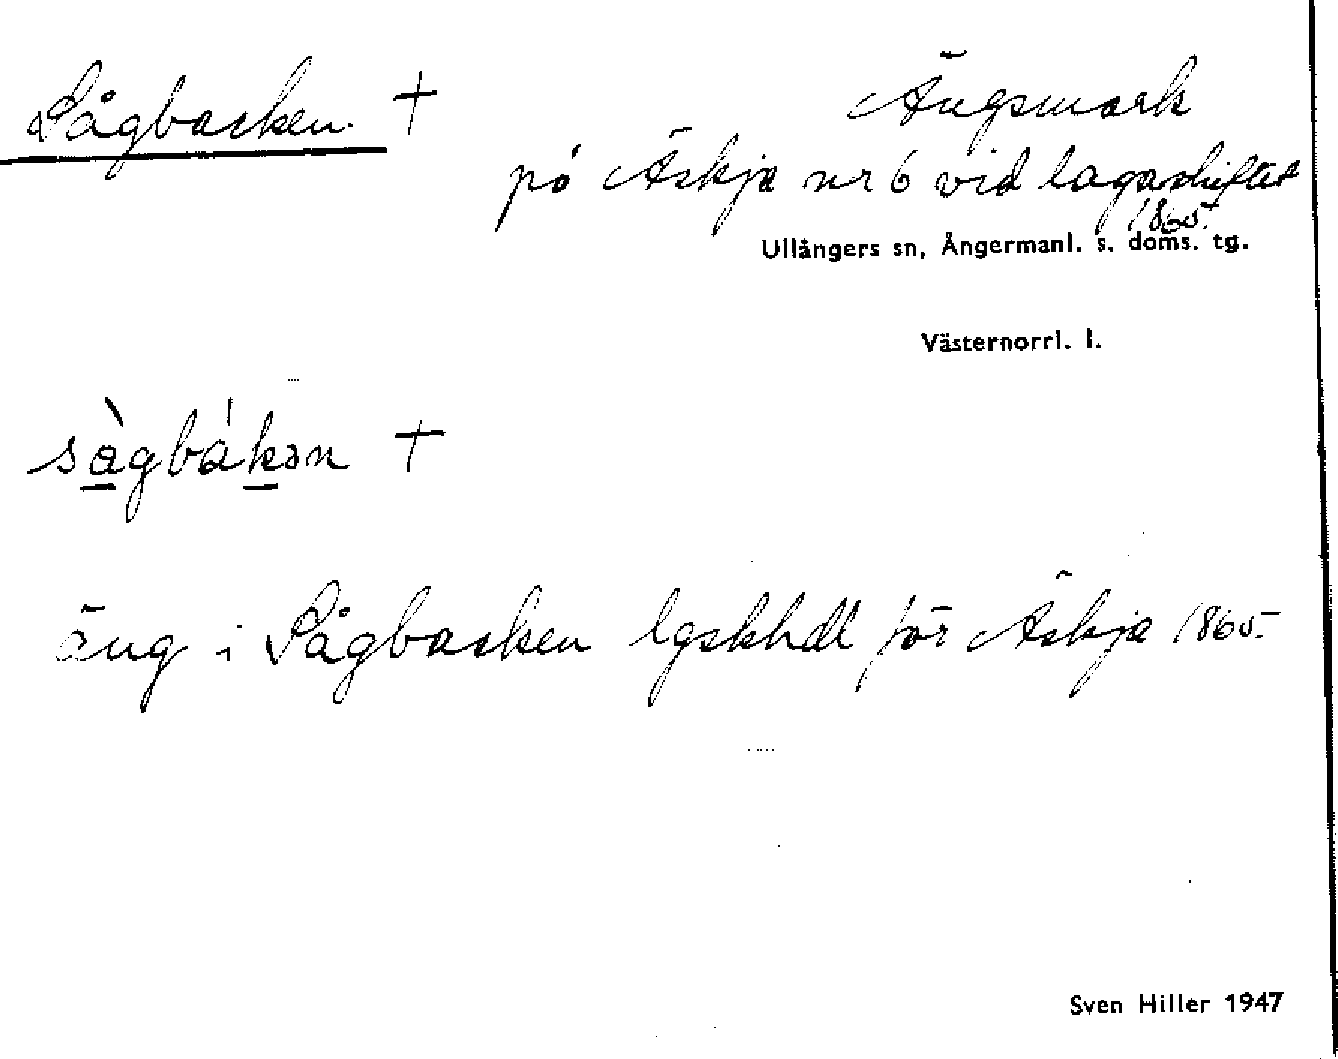 Sågbacken. †
Ängsmark
på Äskja nr 6 vid lagaskiftet
1865.
Ullångers sn, Ångermanl. s. doms. tg.
Västernorrl. l.
sàgbákən †
äng i Sågbacken lgskhdl för Äskja 1865.
Sven Hiller 1947